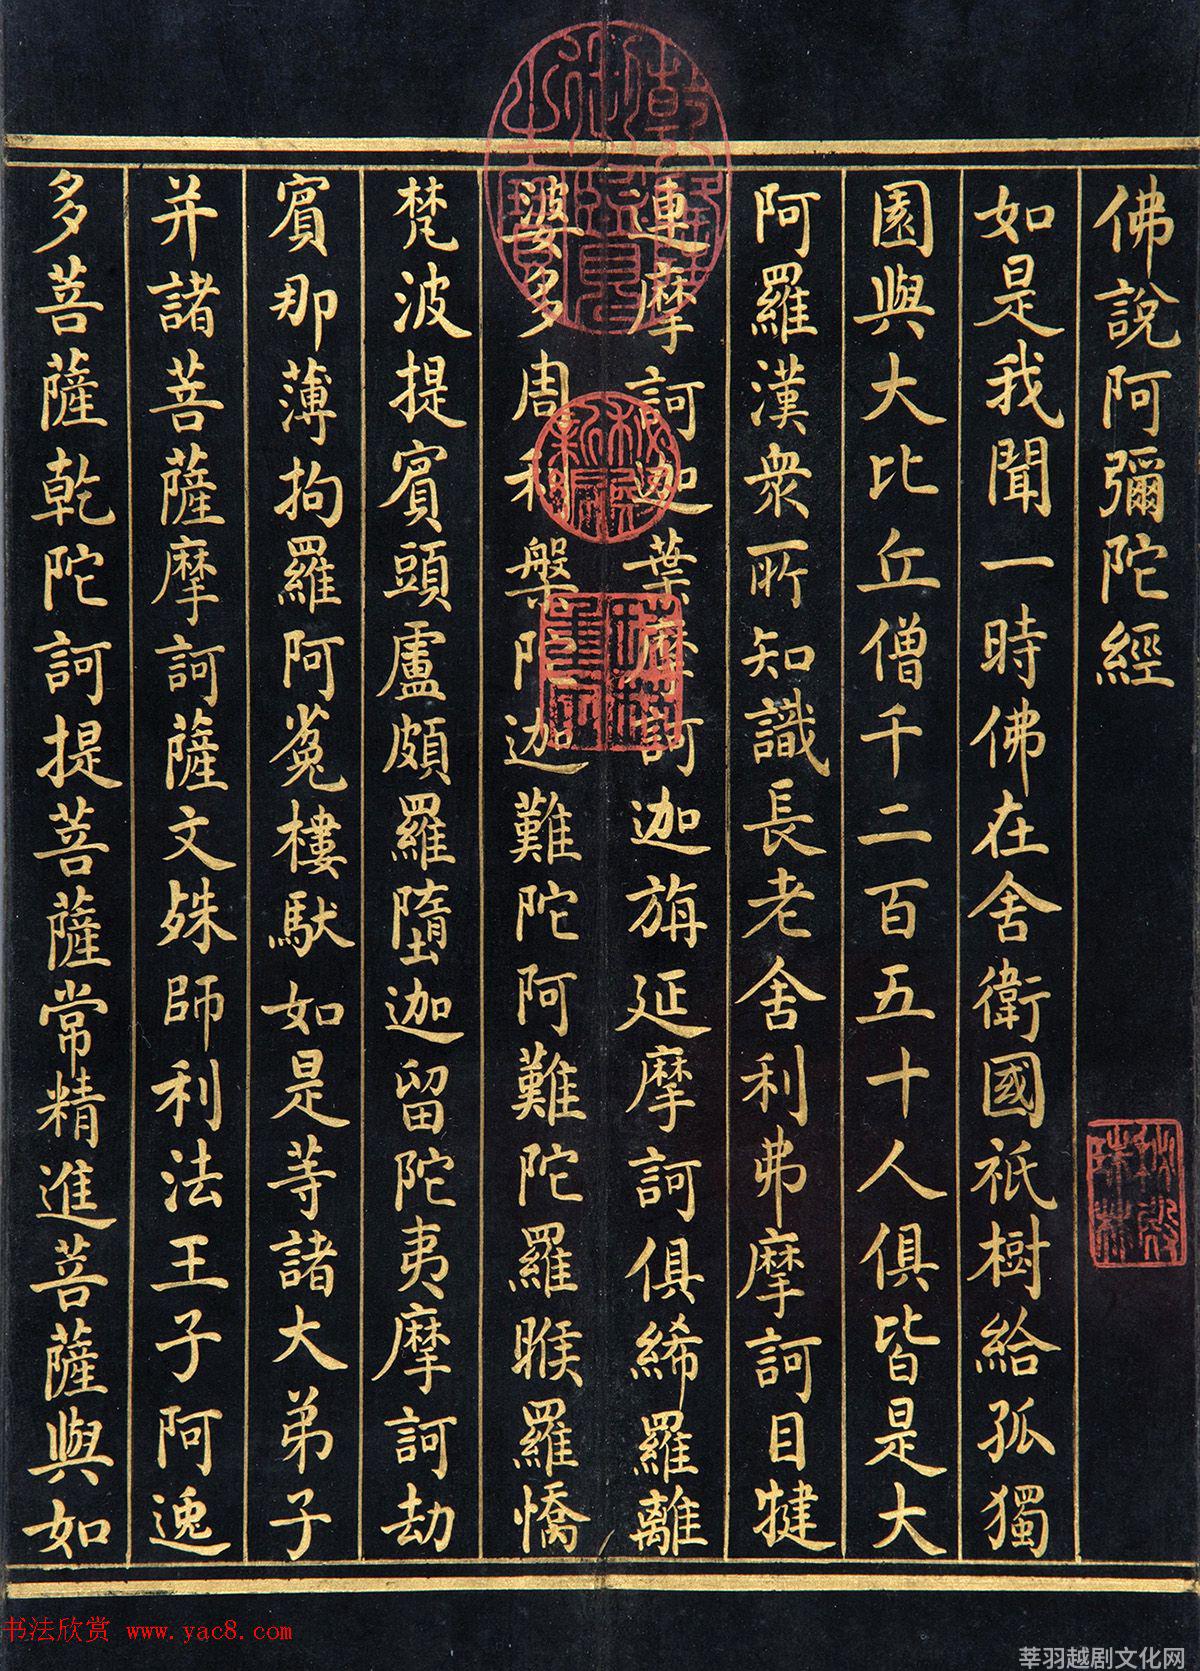 佛說阿彌陀經
如是我聞一時佛在舍衛國祇樹給孤獨
園與大比丘僧千二百五十人俱皆是大
阿羅漢衆所知識長老舍利弗摩訶目犍
連摩訶迦葉摩訶迦旃延摩訶俱絺羅離
婆多周利槃陀迦難陀阿難陀羅睺羅憍
梵波提賓頭盧頗羅墮迦留陀夷摩訶劫
賓那薄拘羅阿㝹樓馱如是等諸大弟子
并諸菩薩摩訶薩文殊師利法王子阿逸
多菩薩乾陀訶提菩薩常精進菩薩與如
乾隆御覽之寶
秘殿新編
珠林重定
秘殿珠林
书法欣赏 www.yac8.com
莘羽越剧文化网